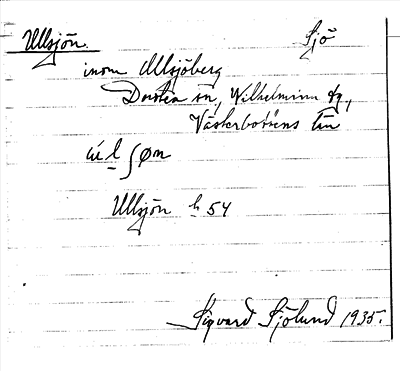 Ullsjön. Sjö
inom Ullsjöberg
Dorotea sn, Wilhelmina tg,
Västerbottens län
Ullsjön h 54
Sigvard Sjölund 1935.